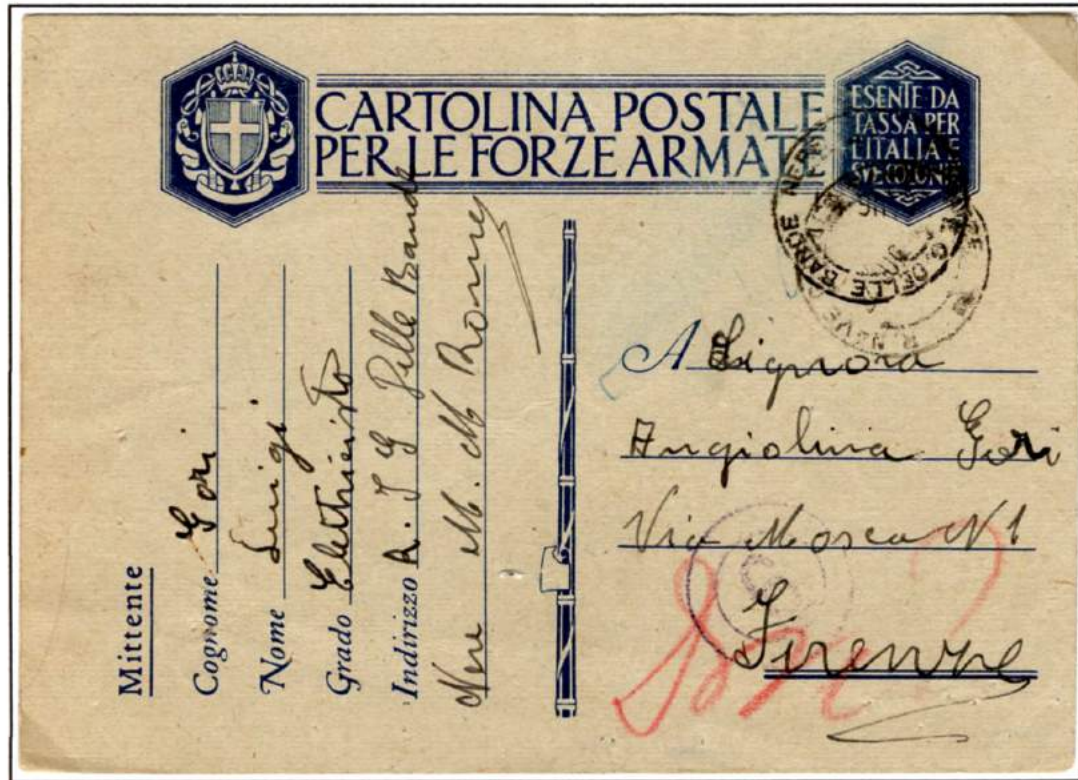 CARTOLINA POSTALE
PER LE FORZE ARMATE
ESENTE DA
TASSA PER
L'ITALIA E
R. NAVE G. DELLE BANDE NERE
Mittente
Cognome Gori
Nome Luigi
Grado Elettricista
Indirizzo R. I. G. Delle Bande
Nere M. M. Roma
A Signora
Angiolina Gori
Via Mosca N 1
Firenze